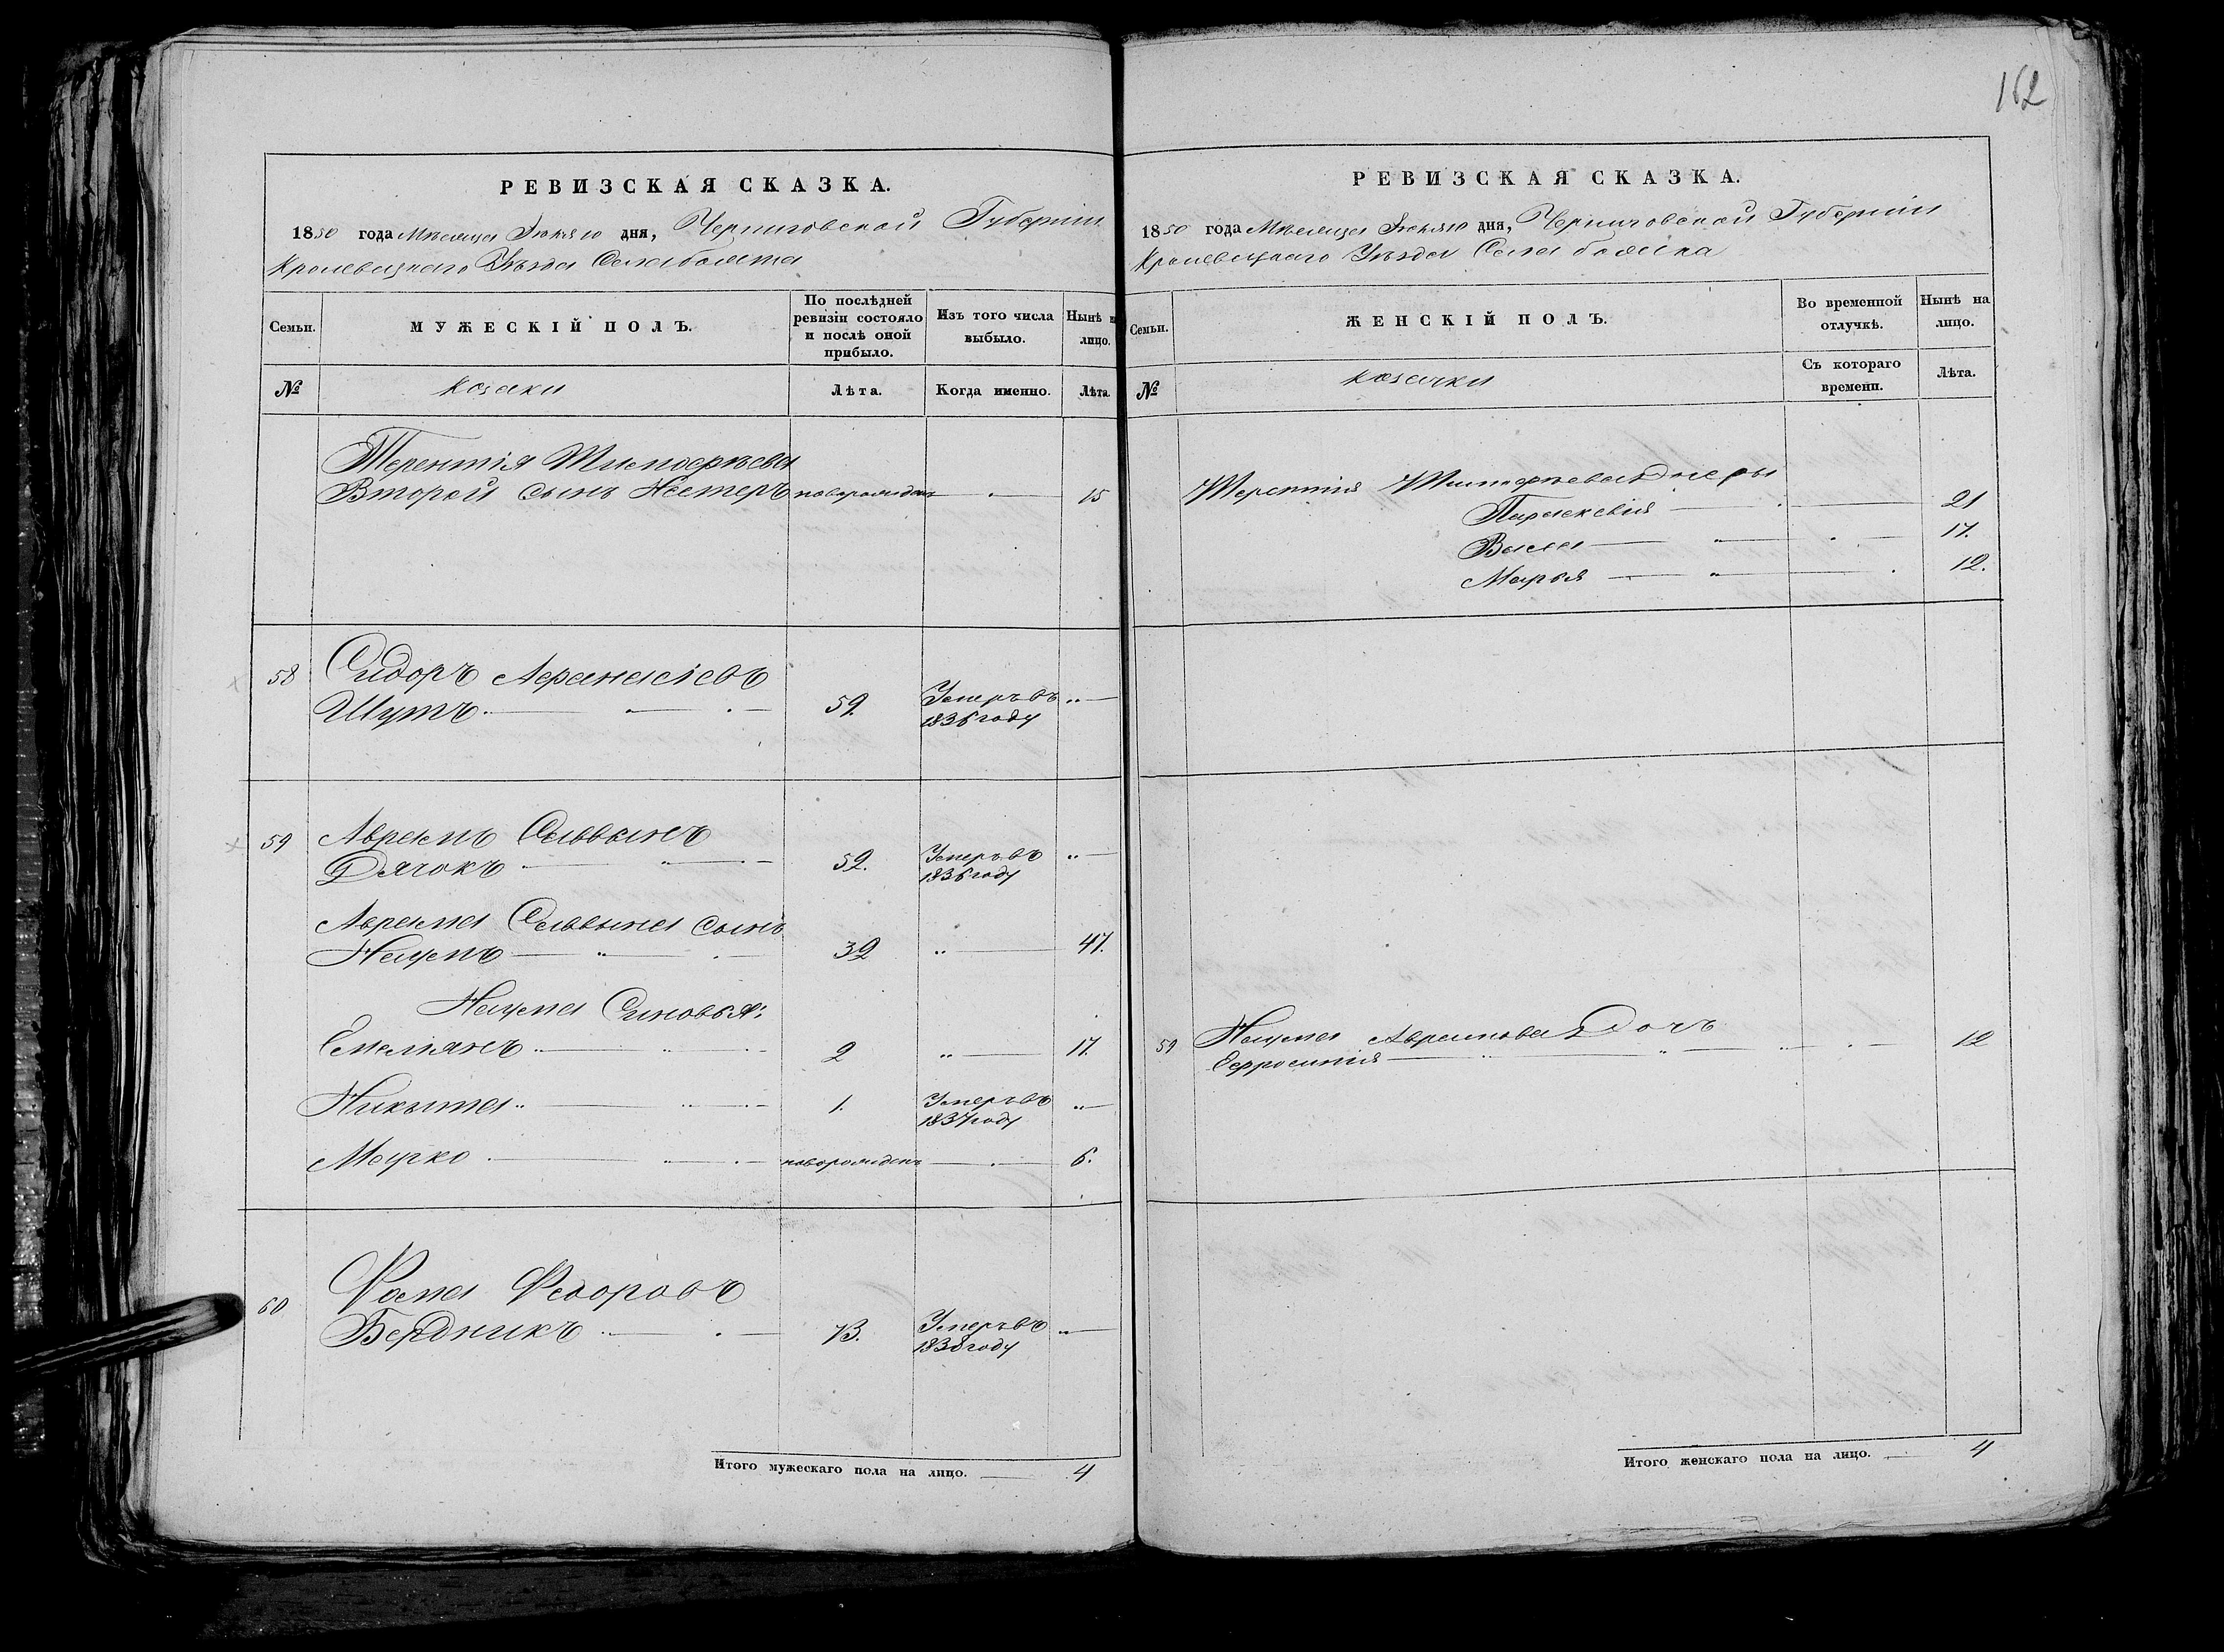 162
РЕВИЗСКАЯ СКАЗКА.
1850 года Мѣсяца Іюля 10 дня, Черниговской Губерніи
Кролевецкаго Уѣзда Села
Семьи.
МУЖЕСКІЙ ПОЛЪ.
По послѣдней ревизіи состояло и послѣ оной прибыло.
Изъ того числа выбыло.
Нынѣ н лицо.
№
козаки
Лѣта.
Когда именно.
Лѣта
Терентія Тимофѣева
Второй сынъ Нестеръ новорожденъ — 15
58 Сидоръ Афанасіевъ
Шутъ 59. Умеръ въ 1836 году "
59 Аврамъ Саввинъ
Дячокъ 52. Умеръ въ 1836 году "
Аврама Саввина сынъ
Наумъ 32 " 47.
Наума Синовья:
Емельянъ 2 " 17.
Никита 1. Умеръ въ 1837 году "
Марко новорожденъ — 6.
60 Фома Федоровъ
Бердникъ 73. Умеръ въ 1838 году "
Итого мужескаго пола на лицо. 4
РЕВИЗСКАЯ СКАЗКА.
1850 года Мѣсяца Іюля 10 дня, Черниговской Губерніи
Кролевецкаго Уѣзда Села
Семьи.
ЖЕНСКІЙ ПОЛЪ.
Во временной отлучкѣ.
Нынѣ на лицо.
№
козачки
Съ котораго времени.
Лѣта.
Терентія Тимофѣева Дочеры
Параскевія 21
Васса 17.
Марья 12.
59 Наума Аврамова Дочъ
Ефросинія 12
Итого женскаго пола на лицо. 4